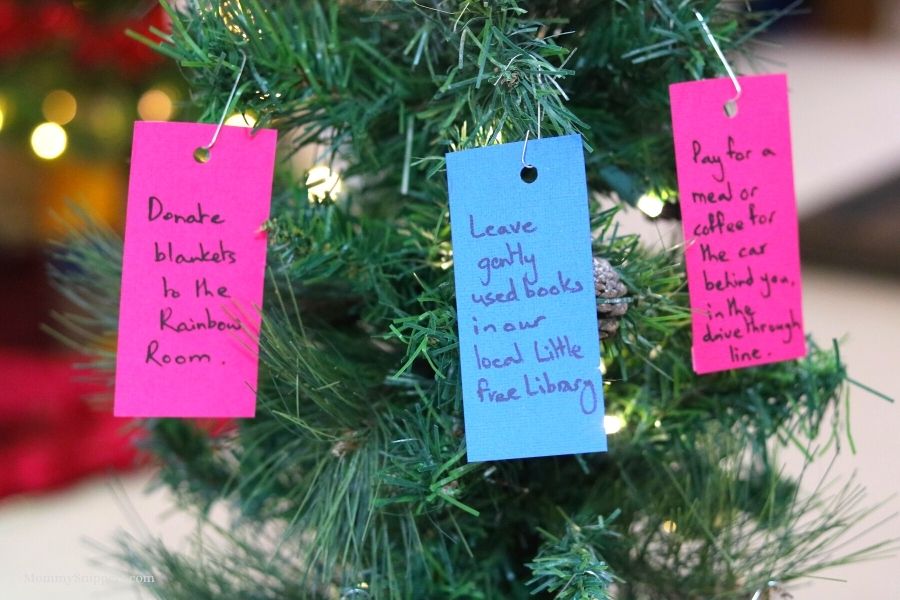 Donate
blankets
to the
Rainbow
Room.
Leave
gently
used books
in our
local Little
free Library
Pay for a
meal or
coffee for
the car
behind you,
in the
drive through
line.
MommySnippets.com